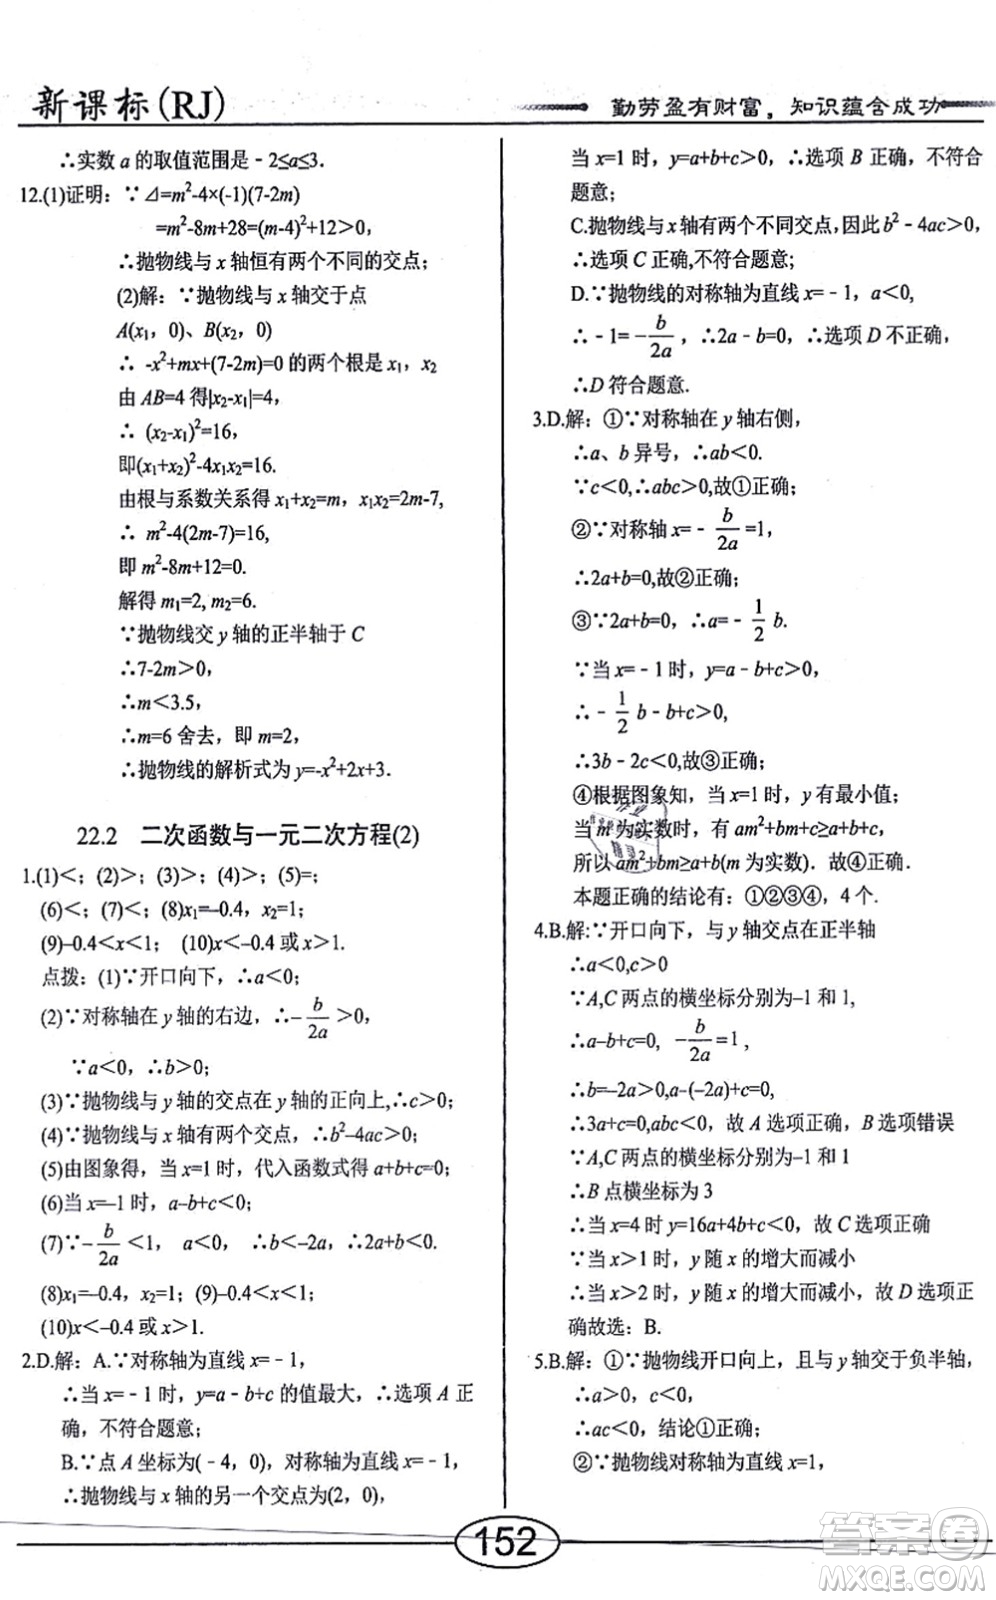 新课标(RJ)
勤劳盈有财富，知识蕴含成功
∴实数 a 的取值范围是﹣2≤a≤3.
12.(1)证明：∵Δ=m²-4×(-1)(7-2m)
=m²-8m+28=(m-4)²+12＞0，
∴抛物线与 x 轴恒有两个不同的交点；
(2)解：∵抛物线与 x 轴交于点
A(x₁，0)、B(x₂，0)
∴ -x²+mx+(7-2m)=0 的两个根是 x₁，x₂
由 AB=4 得|x₂-x₁|=4，
∴ (x₂-x₁)²=16，
即(x₁+x₂)²-4x₁x₂=16.
由根与系数关系得 x₁+x₂=m，x₁x₂=2m-7，
∴ m²-4(2m-7)=16，
即 m²-8m+12=0.
解得 m₁=2, m₂=6.
∵抛物线交 y 轴的正半轴于 C
∴7-2m＞0，
∴m＜3.5，
∴m=6 舍去，即 m=2，
∴抛物线的解析式为 y=-x²+2x+3.
22.2 二次函数与一元二次方程(2)
1.(1)＜；(2)＞；(3)＞；(4)＞；(5)=；
(6)＜；(7)＜；(8)x₁=–0.4，x₂=1；
(9)–0.4＜x＜1； (10)x＜–0.4 或 x＞1.
点拨：(1)∵开口向下，∴a＜0；
(2)∵对称轴在 y 轴的右边，∴–b/2a＞0，
∵a＜0，∴b＞0；
(3)∵抛物线与 y 轴的交点在 y 轴的正向上,∴c＞0；
(4)∵抛物线与 x 轴有两个交点，∴b²–4ac＞0；
(5)由图象得，当 x=1 时，代入函数式得 a+b+c=0；
(6)当 x=–1 时，a–b+c＜0；
(7)∵–b/2a＜1， a＜0，∴b＜–2a，∴2a+b＜0.
(8)x₁=–0.4，x₂=1；(9)–0.4＜x＜1；
(10)x＜–0.4 或 x＞1.
2.D.解：A.∵对称轴为直线 x=﹣1，
∴当 x=﹣1 时，y=a﹣b+c 的值最大，∴选项 A 正
确，不符合题意；
B.∵点 A 坐标为(﹣4，0)，对称轴为直线 x=﹣1，
∴抛物线与 x 轴的另一个交点为(2，0)，
当 x=1 时，y=a+b+c＞0，∴选项 B 正确，不符合
题意；
C.抛物线与 x 轴有两个不同交点，因此 b²﹣4ac＞0，
∴选项 C 正确,不符合题意；
D.∵抛物线的对称轴为直线 x=﹣1，a＜0，
∴﹣1=﹣b/2a，∴2a﹣b=0，∴选项 D 不正确，
∴D 符合题意.
3.D.解：①∵对称轴在 y 轴右侧，
∴a、b 异号，∴ab＜0.
∵c＜0,∴abc＞0,故①正确；
②∵对称轴 x=﹣b/2a=1，
∴2a+b=0,故②正确；
③∵2a+b=0，∴a=﹣1/2 b.
∵当 x=﹣1 时，y=a﹣b+c＞0，
∴﹣1/2 b﹣b+c＞0，
∴3b﹣2c＜0,故③正确；
④根据图象知，当 x=1 时，y 有最小值；
当 m 为实数时，有 am²+bm+c≥a+b+c，
所以 am²+bm≥a+b(m 为实数)．故④正确；
本题正确的结论有：①②③④，4 个.
4.B.解:∵开口向下，与 y 轴交点在正半轴
∴a＜0,c＞0
∵A,C 两点的横坐标分别为–1 和 1，
∴a–b+c=0， –b/2a=1，
∴b=–2a＞0,a-(–2a)+c=0
∴3a+c=0,abc＜0，故 A 选项正确，B 选项错误
∵A,C 两点的横坐标分别为–1 和 1
∴B 点横坐标为 3
∴当 x=4 时 y=16a+4b+c＜0，故 C 选项正确
∵当 x＞1 时，y 随 x 的增大而减小
∴当 x＞2 时，y 随 x 的增大而减小，故 D 选项正
确故选：B.
5.B.解：①∵抛物线开口向上，且与 y 轴交于负半轴，
∴a＞0，c＜0，
∴ac＜0，结论①正确；
②∵抛物线对称轴为直线 x=1，
152
答案卷
MXQE.COM